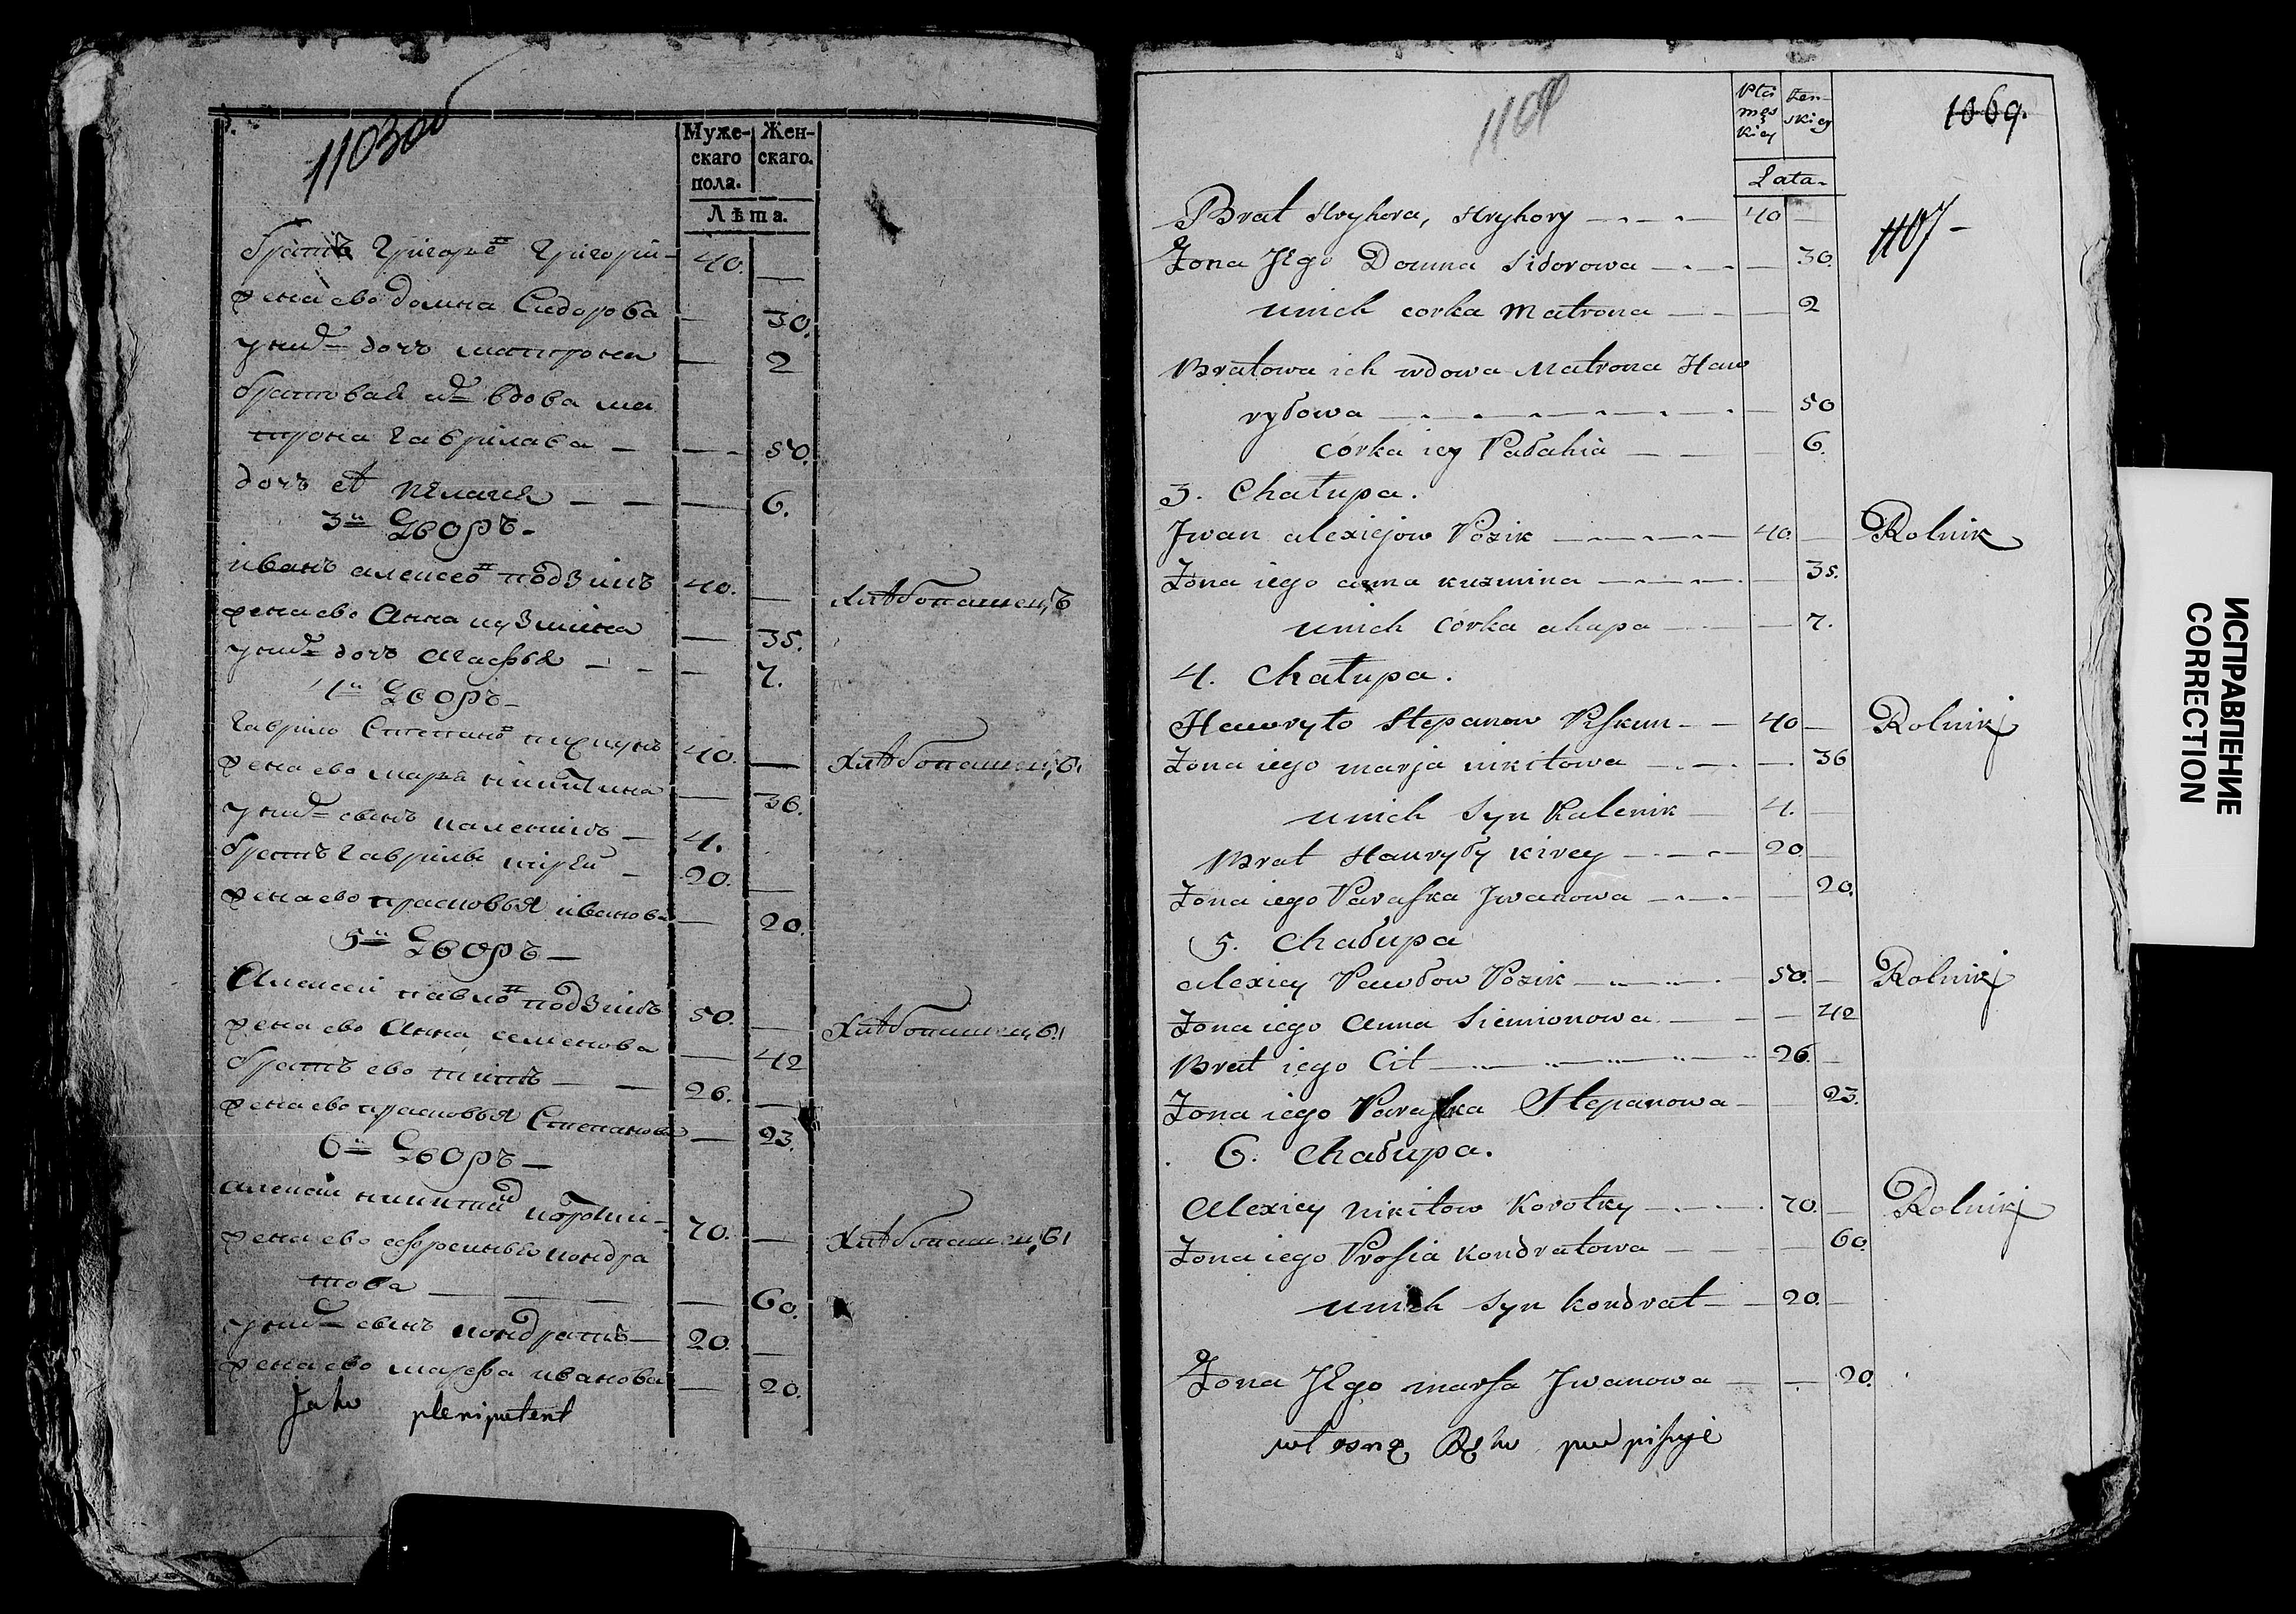 1103 об
Муже-
скаго
пола.
Жен-
скаго.
Лѣта.
братъ Григорьевъ Григорій 40.
жена ево домна Сидорова 30.
у них дочь матрона 2
братовая их вдова ма
трона гаврилова 50.
дочь еѣ пелагея 6.
3й Дворъ
иванъ алексеев подзикъ 40. хлѣбопашецъ
жена ево Анна кузмина 35.
у них дочь агафья 7.
4й Дворъ
гаврило Степанов 40. хлѣбопашецъ
жена ево марья никитина 36.
у них сынъ каленикъ 4.
братъ гаврилы кирей 20.
жена ево прасковья иванова 20.
5й Дворъ
Алексей павлов подзикъ 50. хлѣбопашецъ
жена ево Анна семенова 42
братъ ево титъ 26.
жена ево прасковья Степанова 23.
6й Дворъ
алексей никитин 70. хлѣбопашецъ
жена ево ефросинья кондра
това 60.
у них сынъ кондратъ 20.
жена ево марфа иванова 20.
Jako plenipotent
1104
Płci
męs
kiey
Żen
skiey
Lata
1069.
1107
Brat Hryhora, Hryhory 40
Żona Jego Domna Sidorowa 30.
unich corka Matrona 2
Bratowa ich wdowa Matrona Haw
ryłowa 50
córka iey Pałahia 6.
3. Chałupa.
Jwan alexiejow Pozik 40. Rolnik
Żona iego anna kuzmina 35.
unich córka ahapa 7.
4. Chałupa.
Hawryło Stepanow Piskun 40 Rolnik
Żona iego marja nikitowa 36
unich Syn Kalenik 4.
Brat Hawryły kirey 20.
Żona iego Paraska Jwanowa 20.
5. Chałupa
alexiey Pawłow Pozik 50. Rolnik
Żona iego Anna Siemionowa 42
Brat iego Cit 26.
Żona iego Paraska Stepanowa 23.
6. Chałupa.
Alexiey nikitow Korotky 70. Rolnik
Żona iego Prosia Kondratowa 60.
unich Syn kondrat 20.
Żona Jego marfa Jwanowa 20.
własną Ręko podpisuję
ИСПРАВЛЕНИЕ
CORRECTION